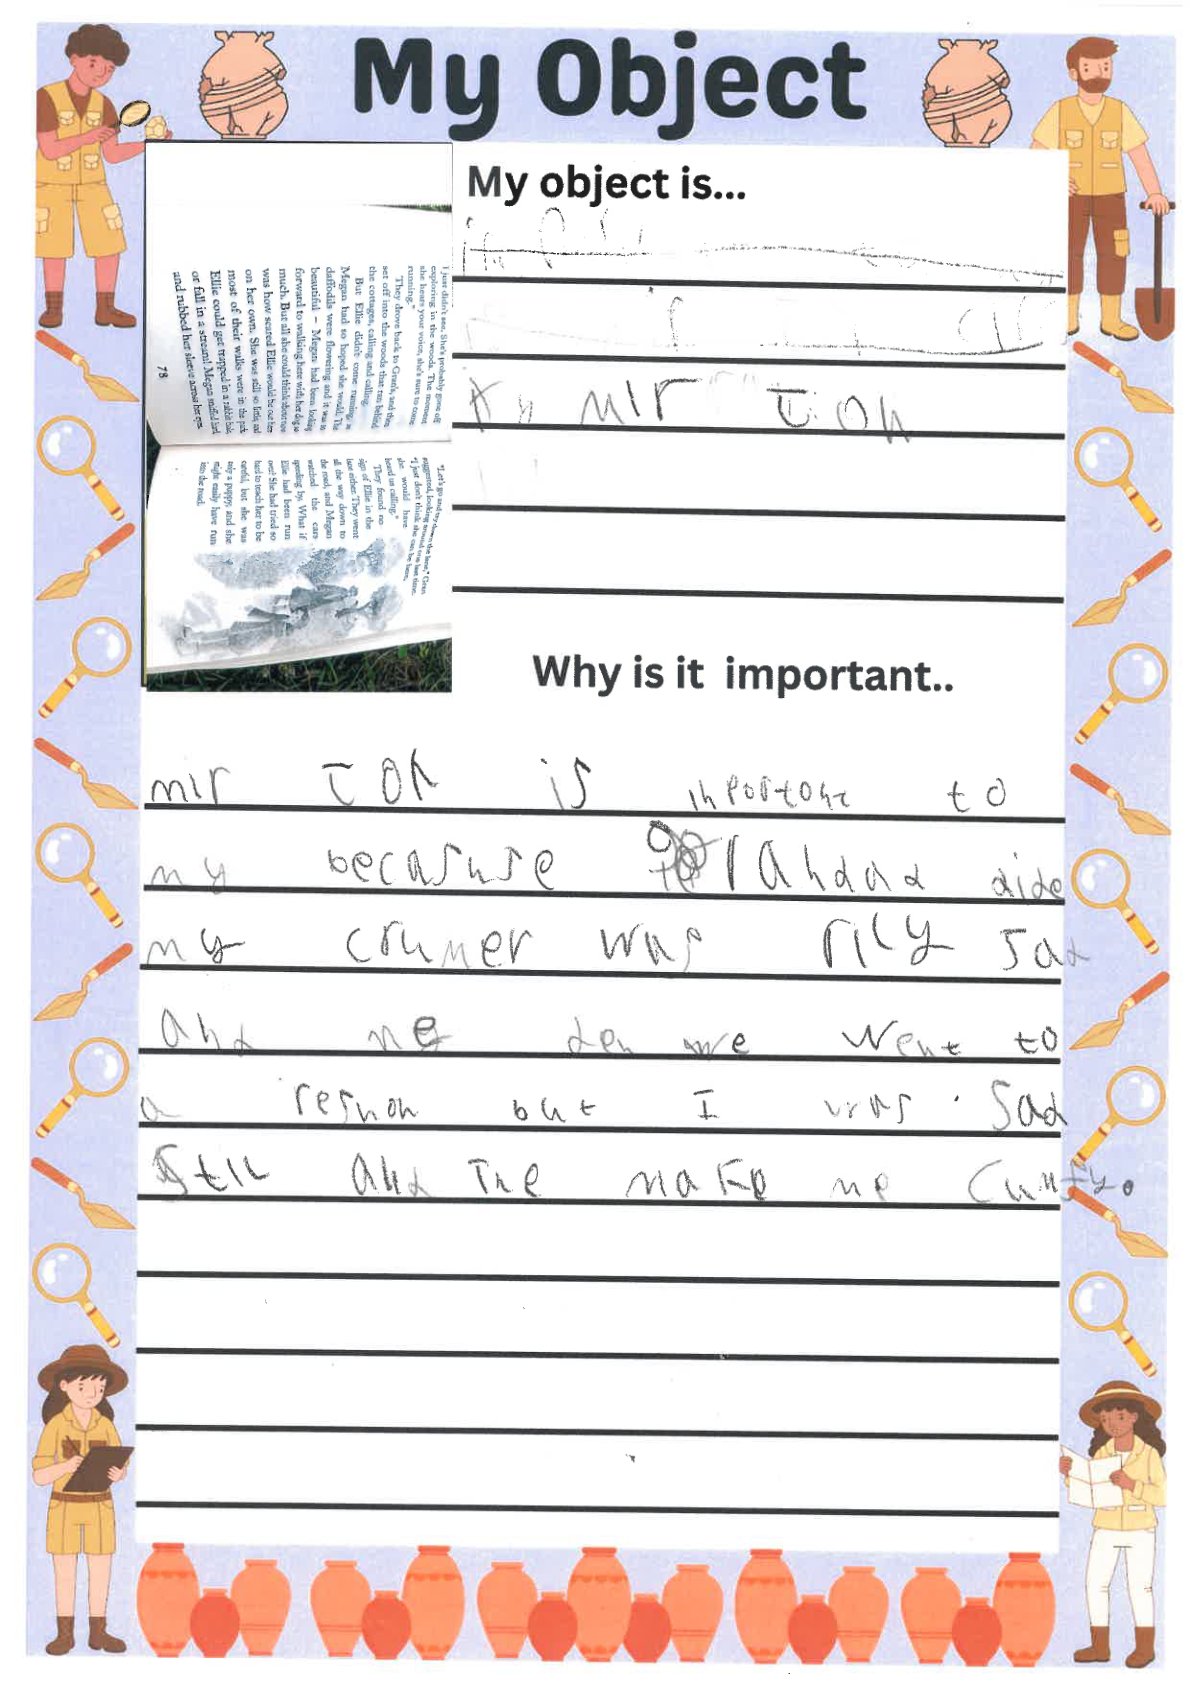 My Object
My object is...
mir TOn
I just didn't see. She's probably gone off
exploring in the woods. The moment
she hears your voice, she's sure to come
running."
They drove back to Gran's, and then
set off into the woods that ran behind
the cottages, calling and calling.
But Ellie didn't come running, as
Megan had so hoped she would. The
daffodils were flowering and it was so
beautiful – Megan had been looking
forward to walking here with her dog so
much. But all she could think about now
was how scared Ellie would be out here
on her own. She was still so little, and
most of their walks were in the park.
Ellie could get trapped in a rabbit hole,
or fall in a stream! Megan sniffed hard,
and rubbed her sleeve across her eyes.
78
"Let's go and try down the lane," Gran
suggested, looking around one last time.
"I just don't think she can be here,
she would have
heard us calling."
They found no
sign of Ellie in the
lane either. They went
all the way down to
the road, and Megan
watched the cars
speeding by. What if
Ellie had been run
over? She had tried so
hard to teach her to be
careful, but she was
only a puppy, and she
might easily have run
into the road.
Why is it important..
mir TOn is inportont to
my becasuse landad dide
my crumer was rily sad
and me den we went to
a resnon but I was sad
still and The make me cumfy.